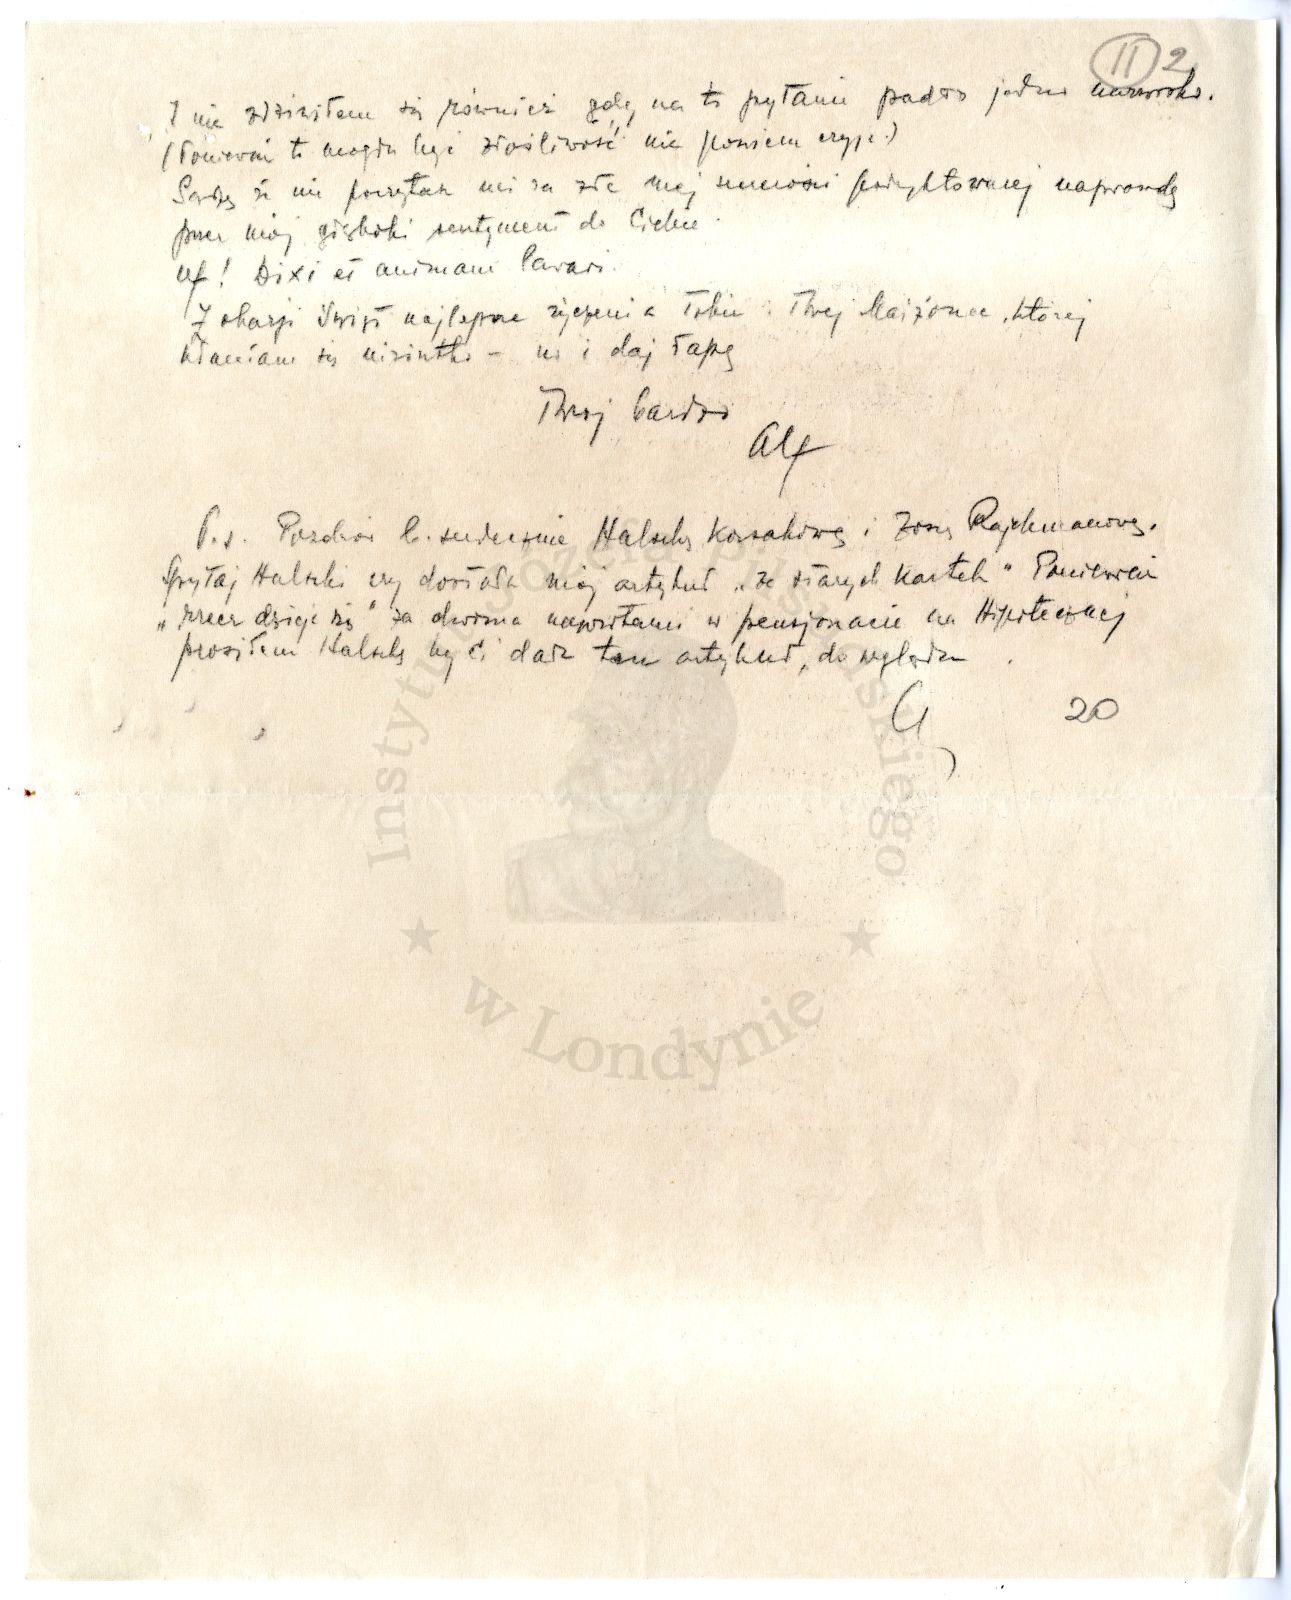 II 2
I nie zdziwiłem się również gdy na to pytanie padło jedno nazwisko.
(Ponieważ to mogła być złośliwość nie powiem czyje.)
Sądzę że nie poczytasz mi za złe mej szczerości podyktowanej naprawdę
przez mój głęboki sentyment do Ciebie.
Uf! Dixi et animam lavavi.
Z okazji Świąt najlepsze życzenia Tobie i Twej Małżonce, której
kłaniam się niziutko – no i daj łapę
Twój bardzo
Alf
P.s. Pozdrów b. serdecznie Halszkę Korsakową i Zosię Rajchmanową.
Spytaj Halszki czy dostała mój artykuł „ze starych kartek" Ponieważ
„rzecz dzieje się" za dwoma nawrotami w pensjonacie na Hipotecznej
prosiłem Halszkę by Ci dała ten artykuł „do wglądu
20
Instytut Józefa Piłsudskiego
w Londynie